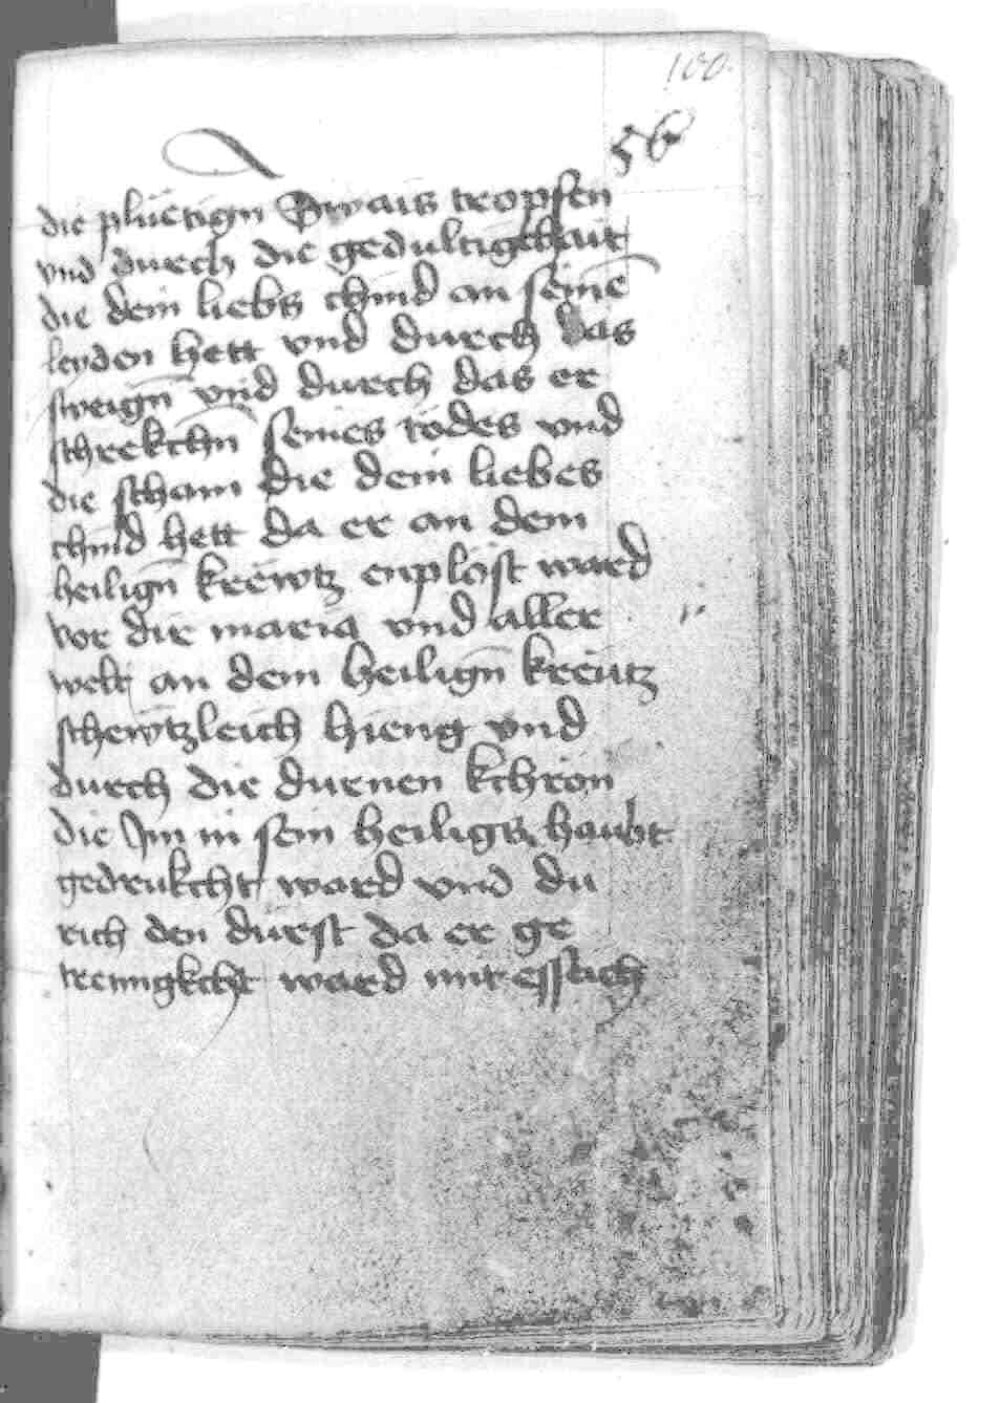 100.
56
die plüetign Swais tropfen
vnd durch die gedultigkhait
die dein liebs chind an seinē
leyden hett vnd durch das
sweign̄ vnd durch das er
schrekchn̄ seines tödes vnd
die scham die dein liebes
chind hett da er an dem
heilign̄ krëwtz enplöst ward
vor dir maria vnd aller
welt an dem heilign̄ kreutz
schewtzleich hieng vnd
durch die durnen kchron
die Im in sein heiligs haubt
gedrukcht ward vnd du
rich den dürst da er ge
trenngkcht ward mit essich